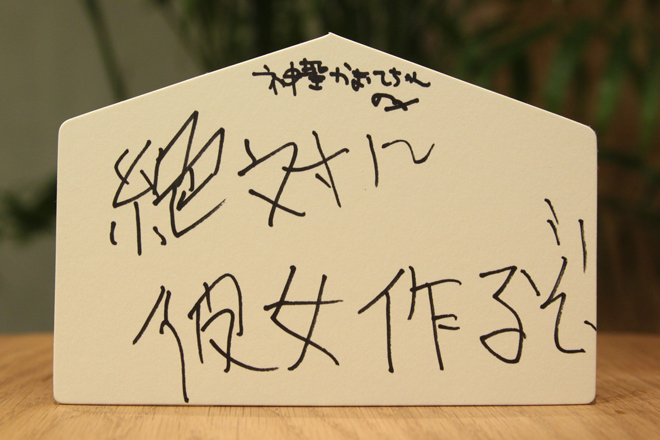 神聖かまってちゃん
のメ
絶対に
彼女作るぞ